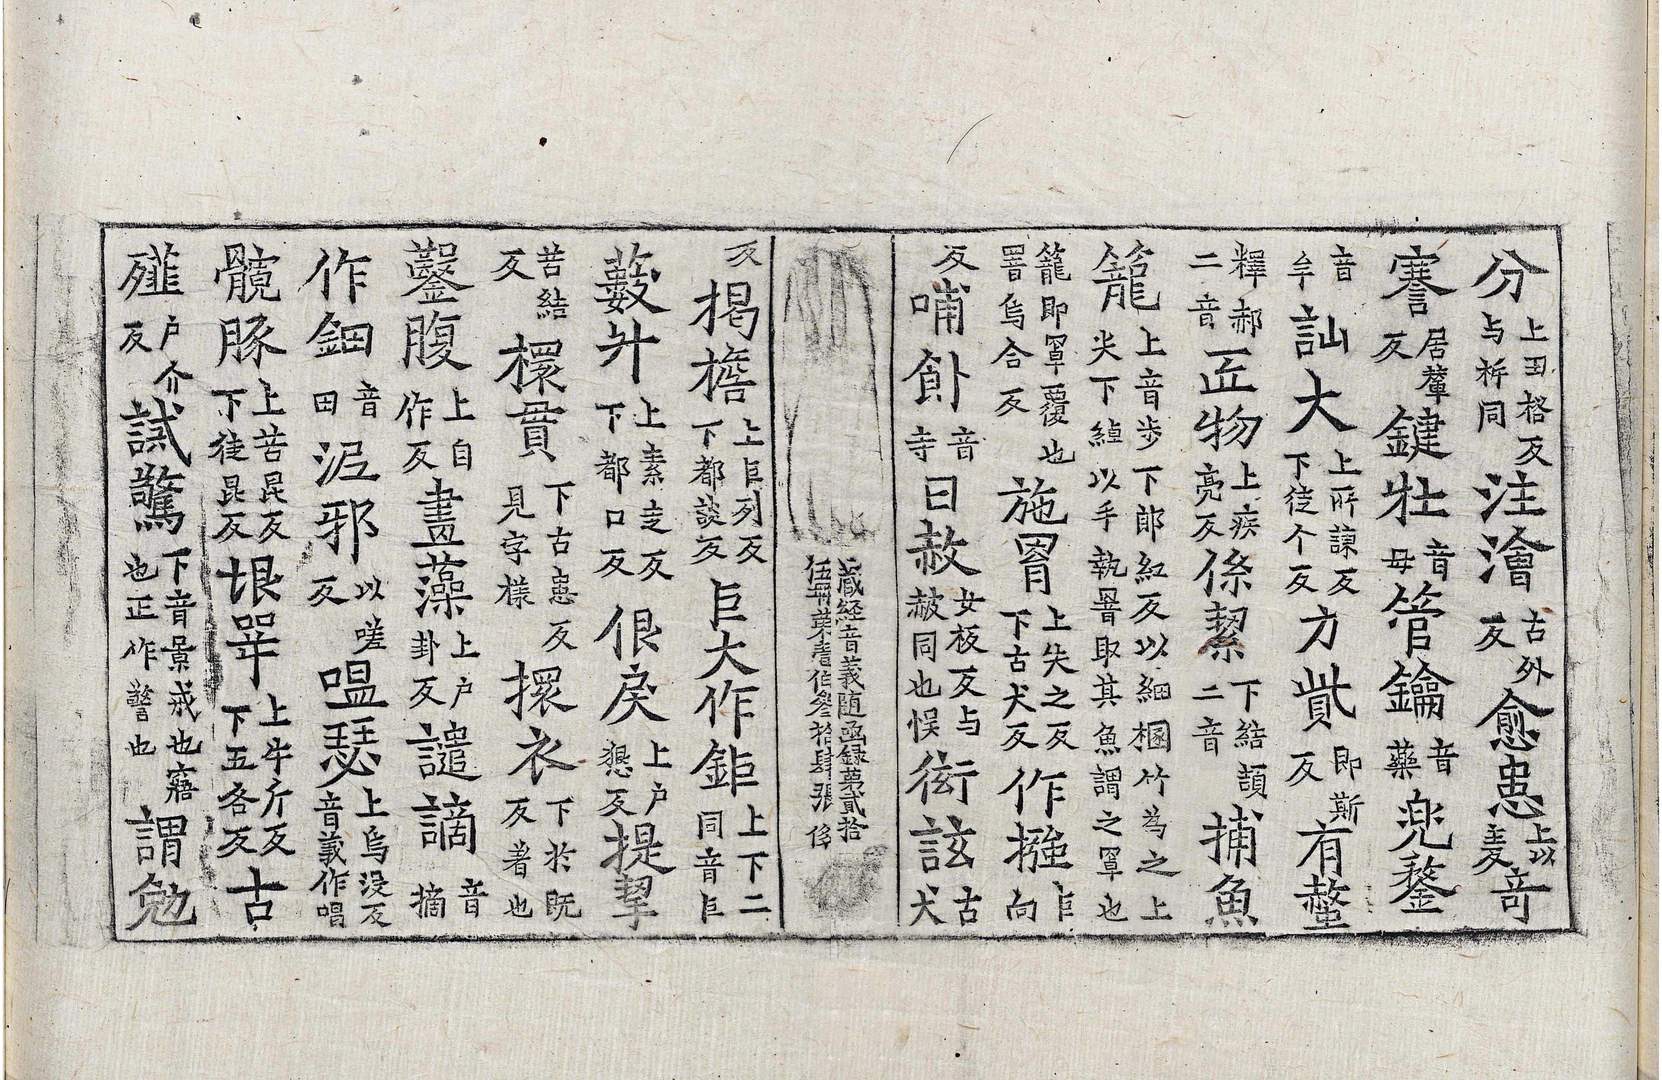 分上田格反与柝同注澮古外反愈患上以主反奇
謇居輦反鍵壯音母管鑰音藥兜鍪
音牟訕大上所諫反下徒个反方貲即斯反有螯
釋郝二音匠物上疾亮反係絜下結頡二音捕魚
籠上音步下郎紅反以細棞竹為之上尖下綽以手執罯取其魚謂之罩也
籠即罩覆也罯烏合反施罥上失之反下古犬反作搥
反哺飤音寺曰赦女板反与赧同也悮衒詃古犬
藏経音義随函録苐貳拾伍冊苐壹伯叄拾肆張 侈
反揭檐上巨列反下都談反巨大作鉅上下二同音巨
藪廾上素走反下都口反佷戾上户懇反提挈
苦結反檈貫下古患反見字樣擐衣下於既反著也
鑿腹上自作反畫藻上户卦反譴謫音摘
作鈿音田泥邪以嗟反嗢瑟上烏没反音義作唱
髖豚上苦昆反下徒昆反垠堮上牛斤反下五各反古
薤户介反誡驚下音景戒也寤也正作警也謂勉